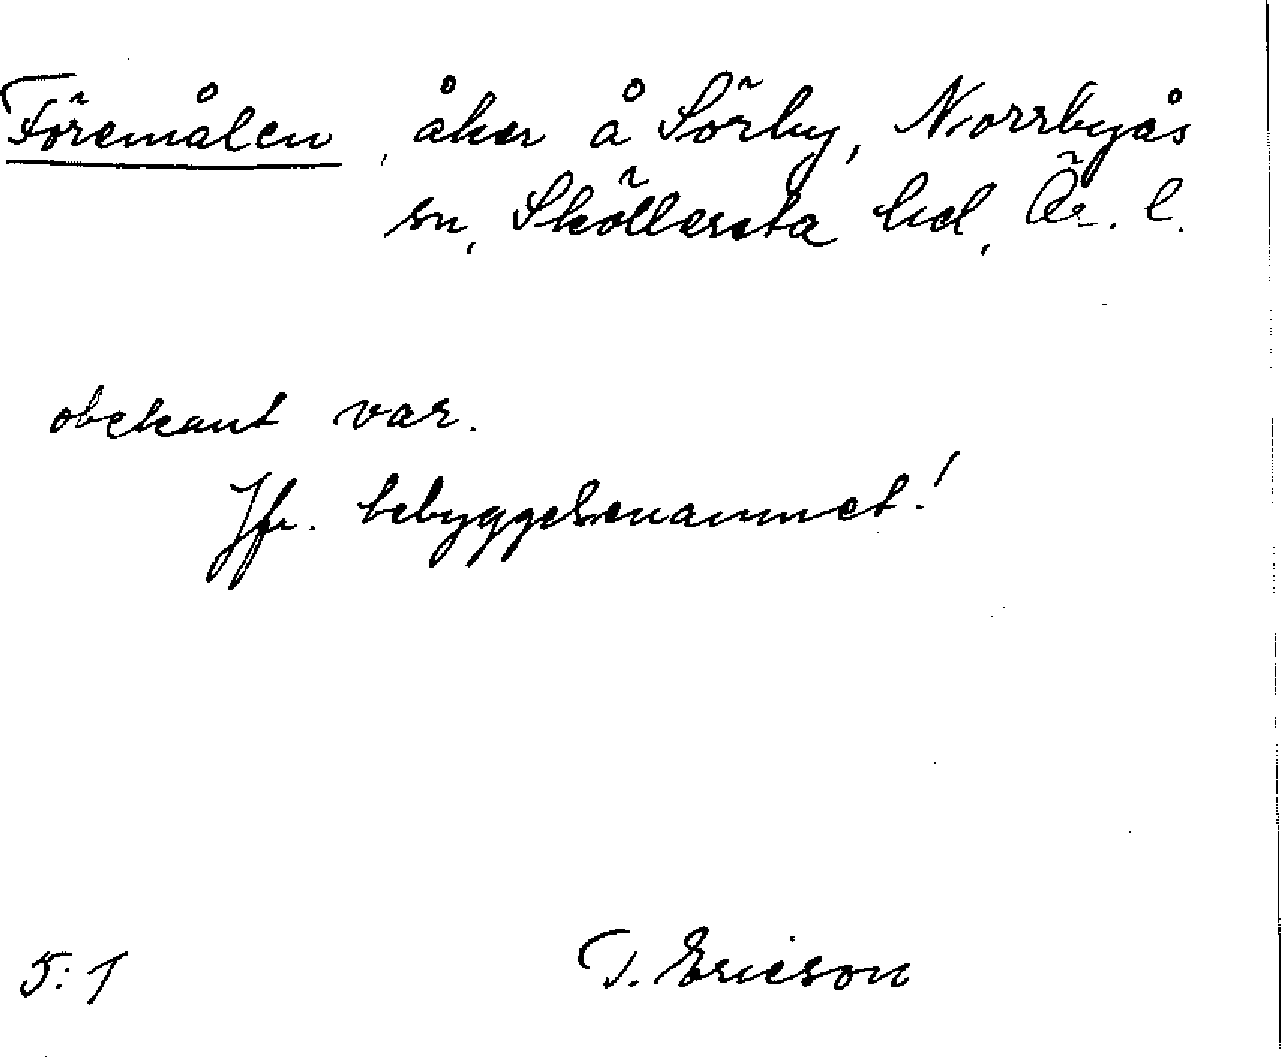 Föremålen, åker å Sörby, Norrbyås
sn, Sköllersta hd, Ör. l.
obekant var.
Jfr. bebyggelsenamnet!
5:1
T. Ericson